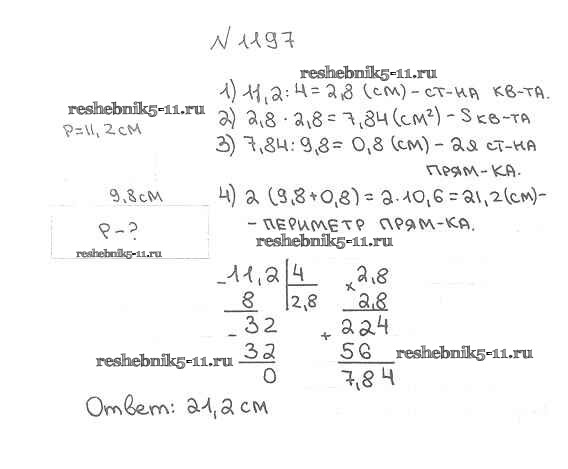 № 1197
reshebnik5-11.ru
1) 11,2:4=2,8 (см) - ст-на кв-та.
reshebnik5-11.ru
2) 2,8 · 2,8 = 7,84 (см²) - S кв-та
P=11,2см
3) 7,84:9,8= 0,8 (см) - 2я ст-на
прям-ка.
9,8см
4) 2 (9,8+0,8) = 2·10,6=21,2(см)-
P-?
- периметр прям-ка.
reshebnik5-11.ru
reshebnik5-11.ru
-11,2 | 4
8 | 2,8
- 32
32
0
× 2,8
2,8
+ 224
56
7,84
reshebnik5-11.ru
reshebnik5-11.ru
Ответ: 21,2 см